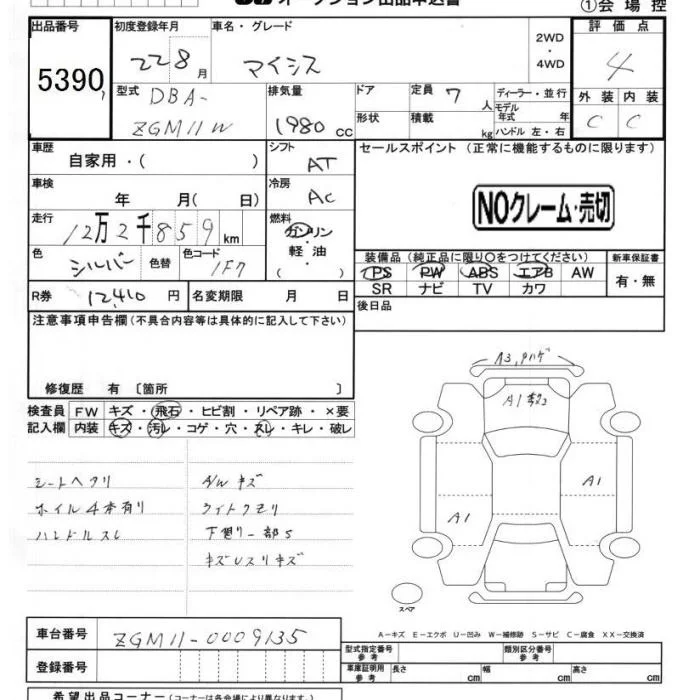 オークション出品申込書
①会場控
出品番号 初度登録年月 車名・グレード 2WD・4WD 評価点
5390 22 8月 マイシス 4
型式 DBA-ZGM11W 排気量 1980cc ドア 定員 7人 ディーラー・並行 外装 内装
形状 積載 kg モデル年式 年 ハンドル 左・右 C C
車歴 自家用・( ) シフト AT セールスポイント (正常に機能するものに限ります)
車検 年 月( 日) 冷房 AC
NOクレーム・売切
走行 12万2千859km 燃料 ガソリン
軽・油
( )
色 シルバー 色替 色コード 1F7
装備品 (純正品に限り○をつけてください) 新車保証書
PS PW ABS エアB AW 有・無
SR ナビ TV カワ
R券 12,410円 名変期限 月 日 後日品
注意事項申告欄(不具合内容等は具体的に記入して下さい)
修復歴 有 〔箇所 〕
検査員 FW キズ・飛石・ヒビ割・リペア跡・×要
記入欄 内装 キズ・汚レ・コゲ・穴・スレ・キレ・破レ
A3,
A1
A1
A1
シートヘタリ A/W キズ
ホイル4本有り ライトクモリ
ハンドルスレ 下廻り一部S
キズUスリキズ
スペア
A-キズ E-エクボ U-凹み W-補修跡 S-サビ C-腐食 XX-交換済
車台番号 ZGM11-0009135
型式指定番号 参考 類別区分番号 参考
登録番号
車庫証明用 参考 長さ cm 幅 cm 高さ cm
希望出品コーナー(コーナーは各会場により異なります)